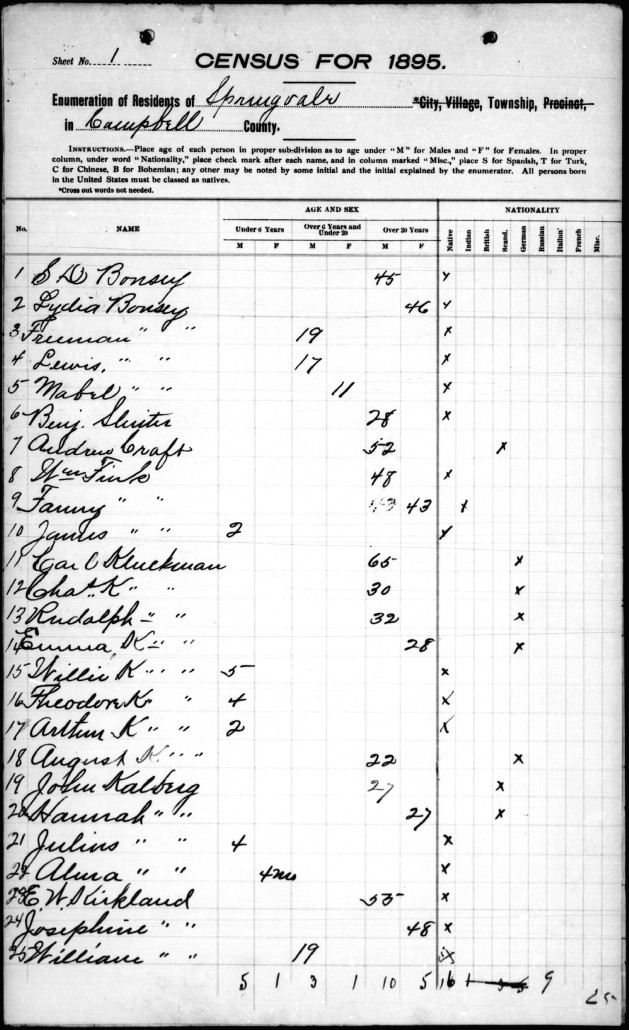 Sheet No. 1
CENSUS FOR 1895.
Enumeration of Residents of Springvale *City, Village, Township, Precinct,
in Campbell County.
INSTRUCTIONS.—Place age of each person in proper sub-division as to age under "M" for Males and "F" for Females. In proper
column, under word "Nationality," place check mark after each name, and in column marked "Misc.," place S for Spanish, T for Turk,
C for Chinese, B for Bohemian; any other may be noted by some initial and the initial explained by the enumerator. All persons born
in the United States must be classed as natives.
*Cross out words not needed.
AGE AND SEX NATIONALITY
No. NAME Under 6 Years Over 6 Years and Under 20 Over 20 Years Native Indian British Scand. German Russian Italian French Misc.
M F M F M F
1 S D Bonsey 45 x
2 Lydia Bonsey 46 x
3 Freeman " " 19 x
4 Lewis, " " 17 x
5 Mabel " " 11 x
6 Benj. 28 x
7 Andrew Craft 52 x
8 Wm Fink 48 x
9 Fanny " " 43 x
10 James " " 2 x
11 Kluckman 65 x
12 Chas. K " " 30 x
13 Rudolph " " 32 x
14 Emma K " " 28 x
15 Willie K " " 5 x
16 Theodore K " 4 x
17 Arthur K " " 2 x
18 August K " " 22 x
19 John Kalberg 27 x
20 Hannah " " 27 x
21 Julius " " 4 x
22 Alma " " 4mo x
23 E. W. Kirkland 55 x
24 Josephine " " 48 x
25 William " " 19 x
5 1 3 1 10 5 16 1 3 5 9
25